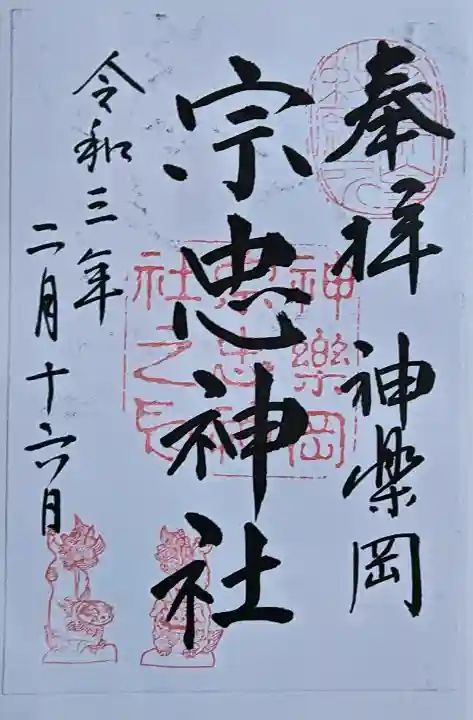 奉拝 神楽岡
宗忠神社
令和三年
二月十六日
神樂岡
宗忠神
社之